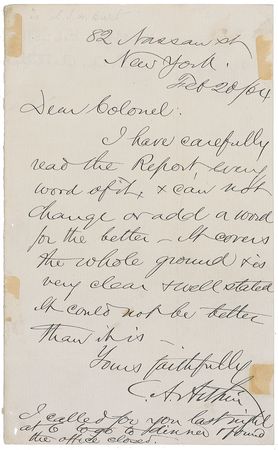 82 Nassau st
New York.
Feb 20/04
Dear Colonel.
I have carefully
read the Report, every
word of it, & can not
change or add a word
for the better – It covers
the whole ground & is
very clear & well stated
It could not be better
than it is –
Yours faithfully
C. A.
I called for you last night
at 6 to go to dinner & found
the office closed.